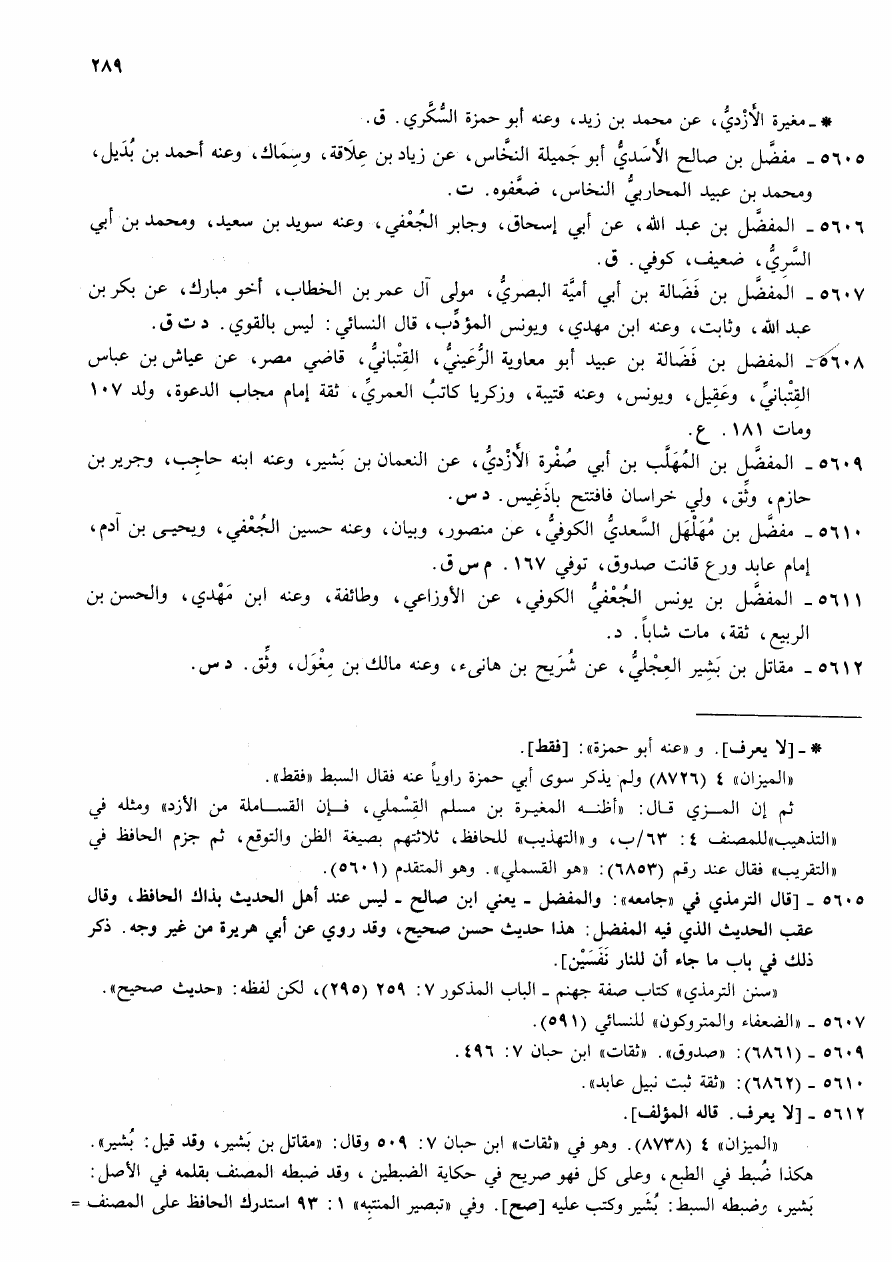 ٢٨٩
* ـ مغيرة الأَزْديُّ، عن محمد بن زيد، وعنه أبو حمزة السُّكَّري. ق.
٥٦٠٥ ـ مفضَّل بن صالح الأَسَديُّ أبو جَميلة النخَّاس، عن زياد بن عِلَاقة، وسِمَاك، وعنه أحمد بن بُدَيل،
ومحمد بن عبيد المحاربيُّ النخاس، ضعَّفوه. ت.
٥٦٠٦ ـ المفضَّل بن عبد الله، عن أبي إسحاق، وجابر الجُعْفي، وعنه سويد بن سعيد، ومحمد بن أبي
السَّرِيُّ، ضعيف، كوفي. ق.
٥٦٠٧ ـ المفضَّل بن فَضَالة بن أبي أميَّة البصريُّ، مولى آل عمر بن الخطاب، أخو مبارك، عن بكر بن
عبد الله، وثابت، وعنه ابن مهدي، ويونس المؤدِّب، قال النسائي: ليس بالقوي. د ت ق.
٥٦٠٨ ـ المفضل بن فَضَالة بن عبيد أبو معاوية الرُّعَينيُّ، القِتْبانيُّ، قاضي مصر، عن عياش بن عباس
القِتْبانيِّ، وعَقِيل، ويونس، وعنه قتيبة، وزكريا كاتبُ العمريِّ، ثقة إمام مجاب الدعوة، ولد ١٠٧
ومات ١٨١. ع.
٥٦٠٩ ـ المفضَّل بن المُهَلَّب بن أبي صُفْرة الأَزْديُّ، عن النعمان بن بَشير، وعنه ابنه حاجِب، وجرير بن
حازم، وثِّق، ولي خراسان فافتتح باذَغِيس. د س.
٥٦١٠ ـ مفضَّل بن مُهَلْهَل السَّعديُّ الكوفيُّ، عن منصور، وبيان، وعنه حسين الجُعْفي، ويحيى بن آدم،
إمام عابد ورع قانت صدوق، توفي ١٦٧. م س ق.
٥٦١١ ـ المفضَّل بن يونس الجُعْفيُّ الكوفي، عن الأوزاعي، وطائفة، وعنه ابن مَهْدي، والحسن بن
الربيع، ثقة، مات شاباً. د.
٥٦١٢ ـ مقاتل بن بَشِير العِجْليُّ، عن شُرَيح بن هانىء، وعنه مالك بن مِغْوَل، وثِّق. د س.
* ـ [لا يعرف]. و «عنه أبو حمزة»: [فقط].
«الميزان» ٤ (٨٧٢٦) ولم يذكر سوى أبي حمزة راوياً عنه فقال السبط «فقط».
ثم إن المزي قال: «أظنه المغيرة بن مسلم القِسْملي، فإن القساملة من الأزد» ومثله في
«التذهيب» للمصنف ٤: ٦٣/ب، و«التهذيب» للحافظ، ثلاثتهم بصيغة الظن والتوقع، ثم جزم الحافظ في
«التقريب» فقال عند رقم (٦٨٥٣): «هو القسملي». وهو المتقدم (٥٦٠١).
٥٦٠٥ ـ [قال الترمذي في «جامعه»: والمفضل ـ يعني ابن صالح ـ ليس عند أهل الحديث بذاك الحافظ، وقال
عقب الحديث الذي فيه المفضل: هذا حديث حسن صحيح، وقد روي عن أبي هريرة من غير وجه. ذكر
ذلك في باب ما جاء أن للنار نَفَسَيْن].
«سنن الترمذي» كتاب صفة جهنم ـ الباب المذكور ٧: ٢٥٩ (٢٩٥)، لكن لفظه: «حديث صحيح».
٥٦٠٧ ـ «الضعفاء والمتروكون» للنسائي (٥٩١).
٥٦٠٩ ـ (٦٨٦١): «صدوق». «ثقات» ابن حبان ٧: ٤٩٦.
٥٦١٠ ـ (٦٨٦٢): «ثقة ثبت نبيل عابد».
٥٦١٢ ـ [لا يعرف. قاله المؤلف].
«الميزان» ٤ (٨٧٣٨). وهو في «ثقات» ابن حبان ٧: ٥٠٩ وقال: «مقاتل بن بَشير، وقد قيل: بُشير».
هكذا ضُبط في الطبع، وعلى كل فهو صريح في حكاية الضبطين، وقد ضبطه المصنف بقلمه في الأصل:
بَشير، وضبطه السبط: بُشَير وكتب عليه [صح]. وفي «تبصير المنتبه» ١: ٩٣ استدرك الحافظ على المصنف =